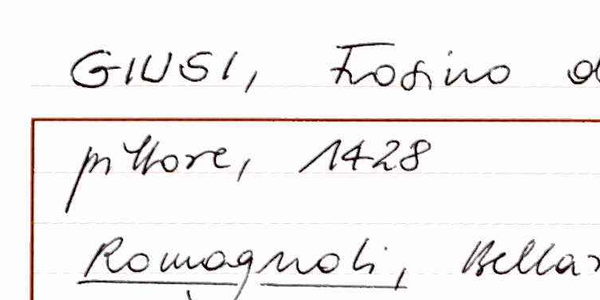 GIUSI, Fosino d
pittore, 1428
Romagnoli, Bellar